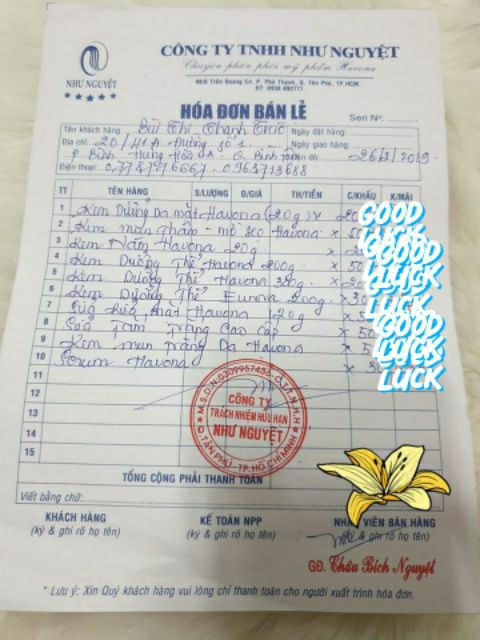 CÔNG TY TNHH NHƯ NGUYỆT
Chuyên phân phối mỹ phẩm Havona
NHƯ NGUYỆT
HÓA ĐƠN BÁN LẺ
Seri Nº:
Tên khách hàng: Bùi Thị Thanh Trúc Ngày đặt hàng:
Địa chỉ: 20/41A Đường số 1 Ngày giao hàng:
P Bình Hưng Hòa Q Bình Tân 26/2/2019
Điện thoại: 0963713688
TT TÊN HÀNG S/LƯỢNG Đ/GIÁ TH/TIỀN C/KHẤU K/MÃI
1 Kem Dưỡng Da mặt Havona (20g) x
2 Kem mụn thâm - mờ sẹo Havona x
3 Kem Nám Havona 20g x
4 Kem Dưỡng Thể Havona 200g x
5 Kem Dưỡng Thể Havona x
6 Kem Dưỡng Thể Eunova 200g x
7 Sữa Rửa Mặt Havona 120g x
8 Sữa Tắm Trắng Cao cấp x
9 Kem mụn trắng Da Havona x
10 Serum Havona x
11
12
13
14
15
GOOD
LUCK
GOOD
LUCK
LUCK
GOOD
LUCK
LUCK
M.S.D.N: 0309957436
CÔNG TY
TRÁCH NHIỆM HỮU HẠN
NHƯ NGUYỆT
Q.TÂN PHÚ - TP.HỒ CHÍ MINH
TỔNG CỘNG PHẢI THANH TOÁN
Viết bằng chữ:
KHÁCH HÀNG KẾ TOÁN NPP NHÂN VIÊN BÁN HÀNG
(ký & ghi rõ họ tên) (ký & ghi rõ họ tên) (ký & ghi rõ họ tên)
GĐ. Châu Bích Nguyệt
* Lưu ý: Xin Quý khách hàng vui lòng chỉ thanh toán cho người xuất trình hóa đơn.